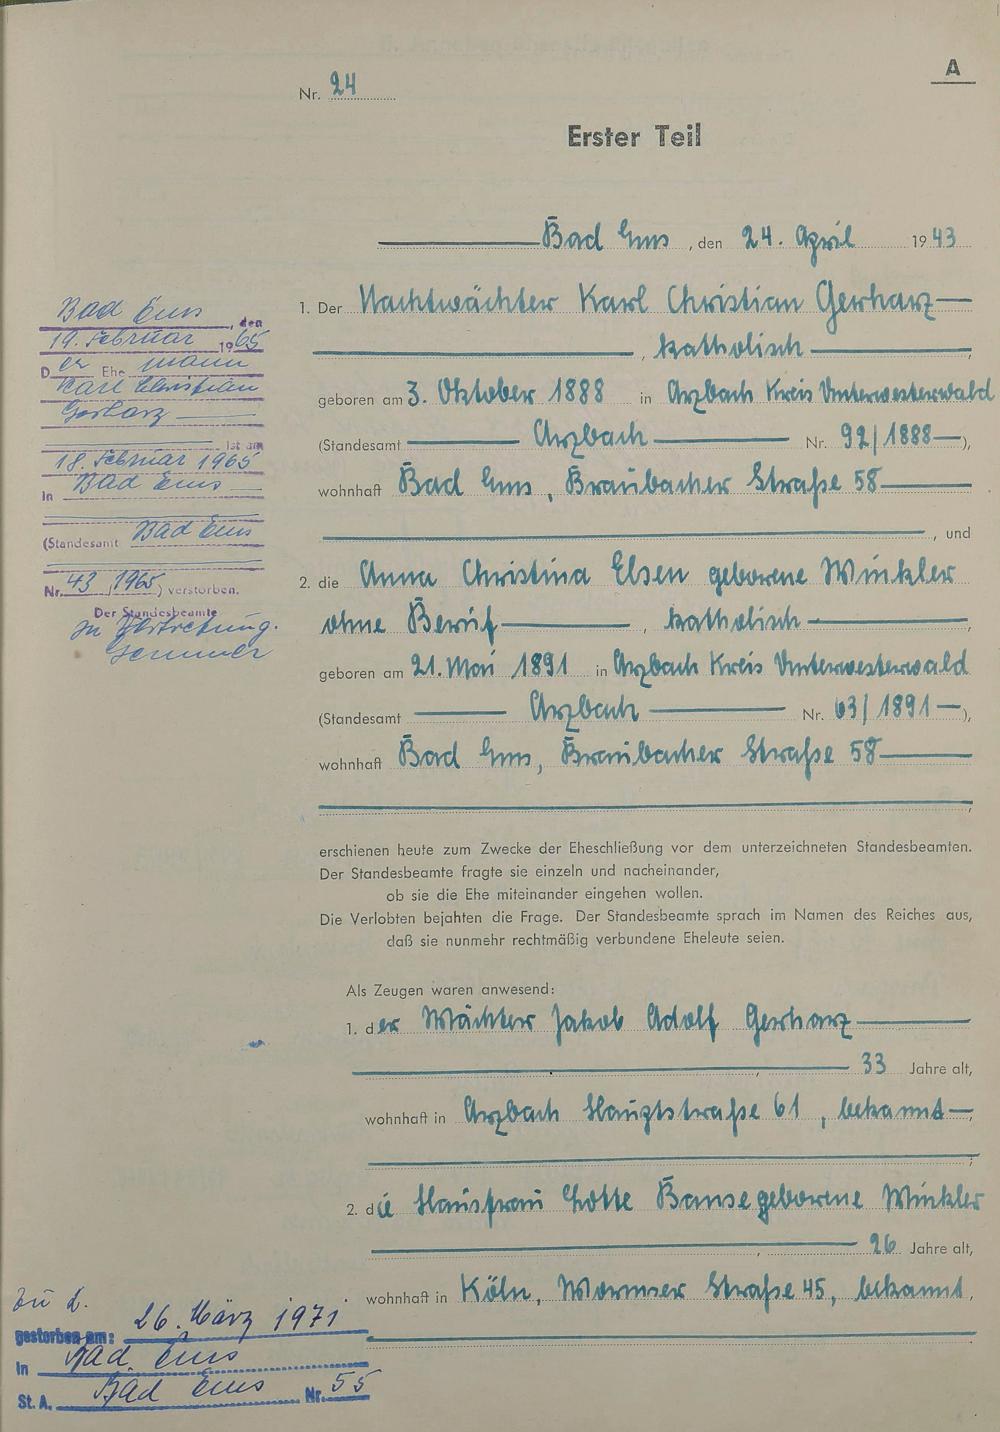 A
Nr. 24
Erster Teil
Bad Ems, den 24. April 1943
1. Der Nachtwächter Karl Christian Gerharz
, katholisch,
geboren am 3. Oktober 1888 in Arzbach Kreis Unterwesterwald
(Standesamt Arzbach Nr. 92/1888),
wohnhaft Bad Ems, Braubacher Straße 58
, und
2. die Anna Christina Elsen geborene Winkler
ohne Beruf, katholisch,
geboren am 21. Mai 1891 in Arzbach Kreis Unterwesterwald
(Standesamt Arzbach Nr. 63/1891),
wohnhaft Bad Ems, Braubacher Straße 58
erschienen heute zum Zwecke der Eheschließung vor dem unterzeichneten Standesbeamten.
Der Standesbeamte fragte sie einzeln und nacheinander,
ob sie die Ehe miteinander eingehen wollen.
Die Verlobten bejahten die Frage. Der Standesbeamte sprach im Namen des Reiches aus,
daß sie nunmehr rechtmäßig verbundene Eheleute seien.
Als Zeugen waren anwesend:
1. der Wächter Jakob Adolf Gerharz
, 33 Jahre alt,
wohnhaft in Arzbach Hauptstraße 61, bekannt,
;
2. die Hausfrau Lotte Banse geborene Winkler
, 26 Jahre alt,
wohnhaft in Köln, Wormser Straße 45, bekannt,
Bad Ems, den
19. Februar 1965
Der Ehemann
Karl Christian
Gerharz
ist am
18. Februar 1965
in Bad Ems
(Standesamt Bad Ems
Nr. 43/1965) verstorben.
Der Standesbeamte
In Vertretung.
zu 2.
gestorben am: 26. März 1971
in Bad Ems
St. A. Bad Ems Nr. 55